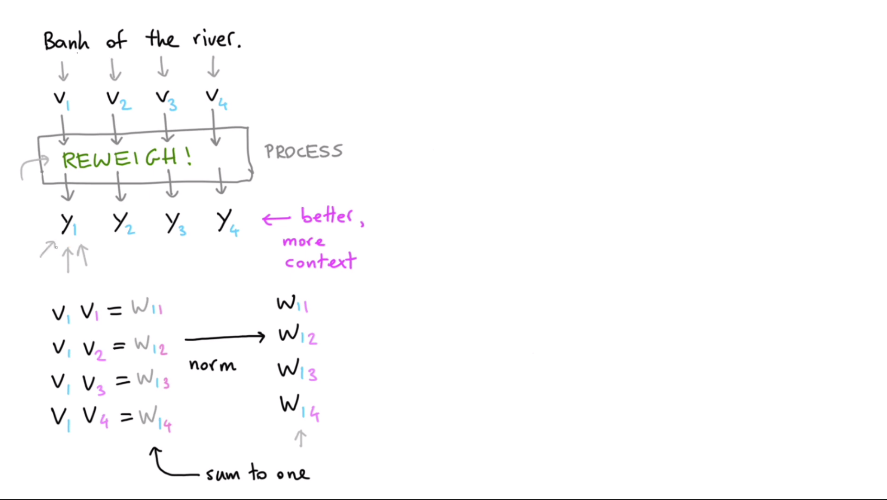 Bank of the river.
v1 v2 v3 v4
REWEIGH!
PROCESS
y1 y2 y3 y4
← better,
more
context
v1 v1 = w11
v1 v2 = w12
v1 v3 = w13
v1 v4 = w14
norm
w11
w12
w13
w14
sum to one